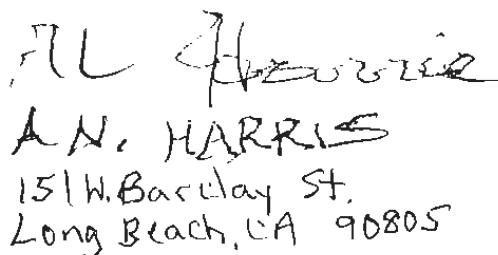 AL Harris
A N. HARRIS
151 W. Barclay St.
Long Beach, CA 90805